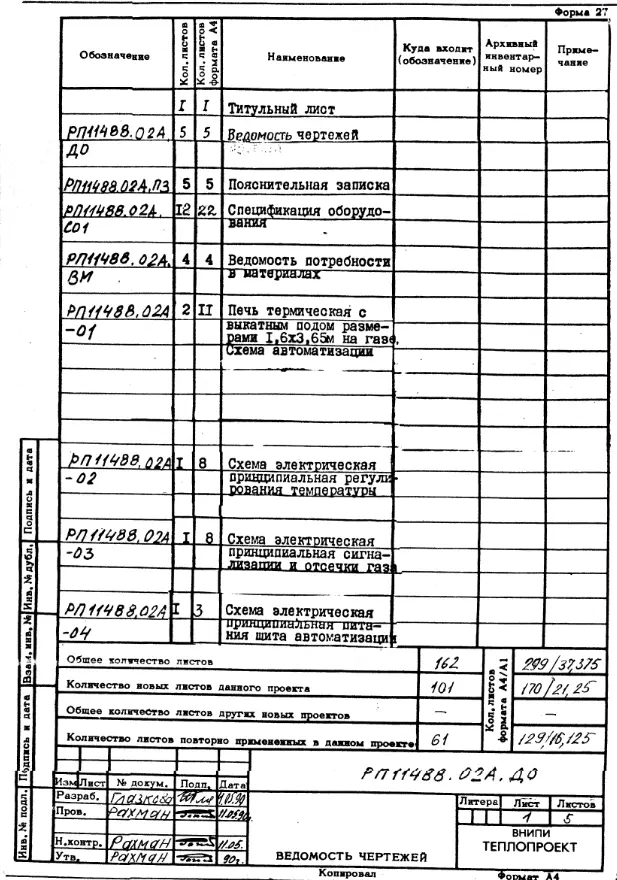 Форма 27
Обозначение Кол. листов Кол. листов формата А4 Наименование Куда входит (обозначение) Архивный инвентарный номер Примечание
I I Титульный лист
РП11488.02А. 5 5 Ведомость чертежей
ДО
РП11488.02А.ПЗ 5 5 Пояснительная записка
РП11488.02А. 12 22 Спецификация оборудо-
СО1 вания
РП11488.02А. 4 4 Ведомость потребности
ВМ в материалах
РП11488.02А 2 II Печь термическая с
-01 выкатным подом разме-
рами I,6х3,65м на газе.
Схема автоматизации
РП11488.02А I 8 Схема электрическая
-02 принципиальная регули-
рования температуры
РП11488.02А I 8 Схема электрическая
-03 принципиальная сигна-
лизации и отсечки газа
РП11488.02А I 3 Схема электрическая
-04 принципиальная пита-
ния щита автоматизации
Общее количество листов 162 299/37,375
Количество новых листов данного проекта 101 170/21,25
Общее количество листов других новых проектов — —
Количество листов повторно примененных в данном проекте 61 129/16,125
Кол. листов формата А4/А1
РП11488.02А.ДО
Изм Лист № докум. Подп. Дата
Разраб. Глазкова
Пров. Рахман 11.05.90
Н.контр. Рахман 11.05.
Утв. Рахман 90г.
ВЕДОМОСТЬ ЧЕРТЕЖЕЙ
Литера Лист Листов
1 5
ВНИПИ
ТЕПЛОПРОЕКТ
Копировал Формат А4
Инв. № подл. Подпись и дата Взам. инв. № Инв. № дубл. Подпись и дата